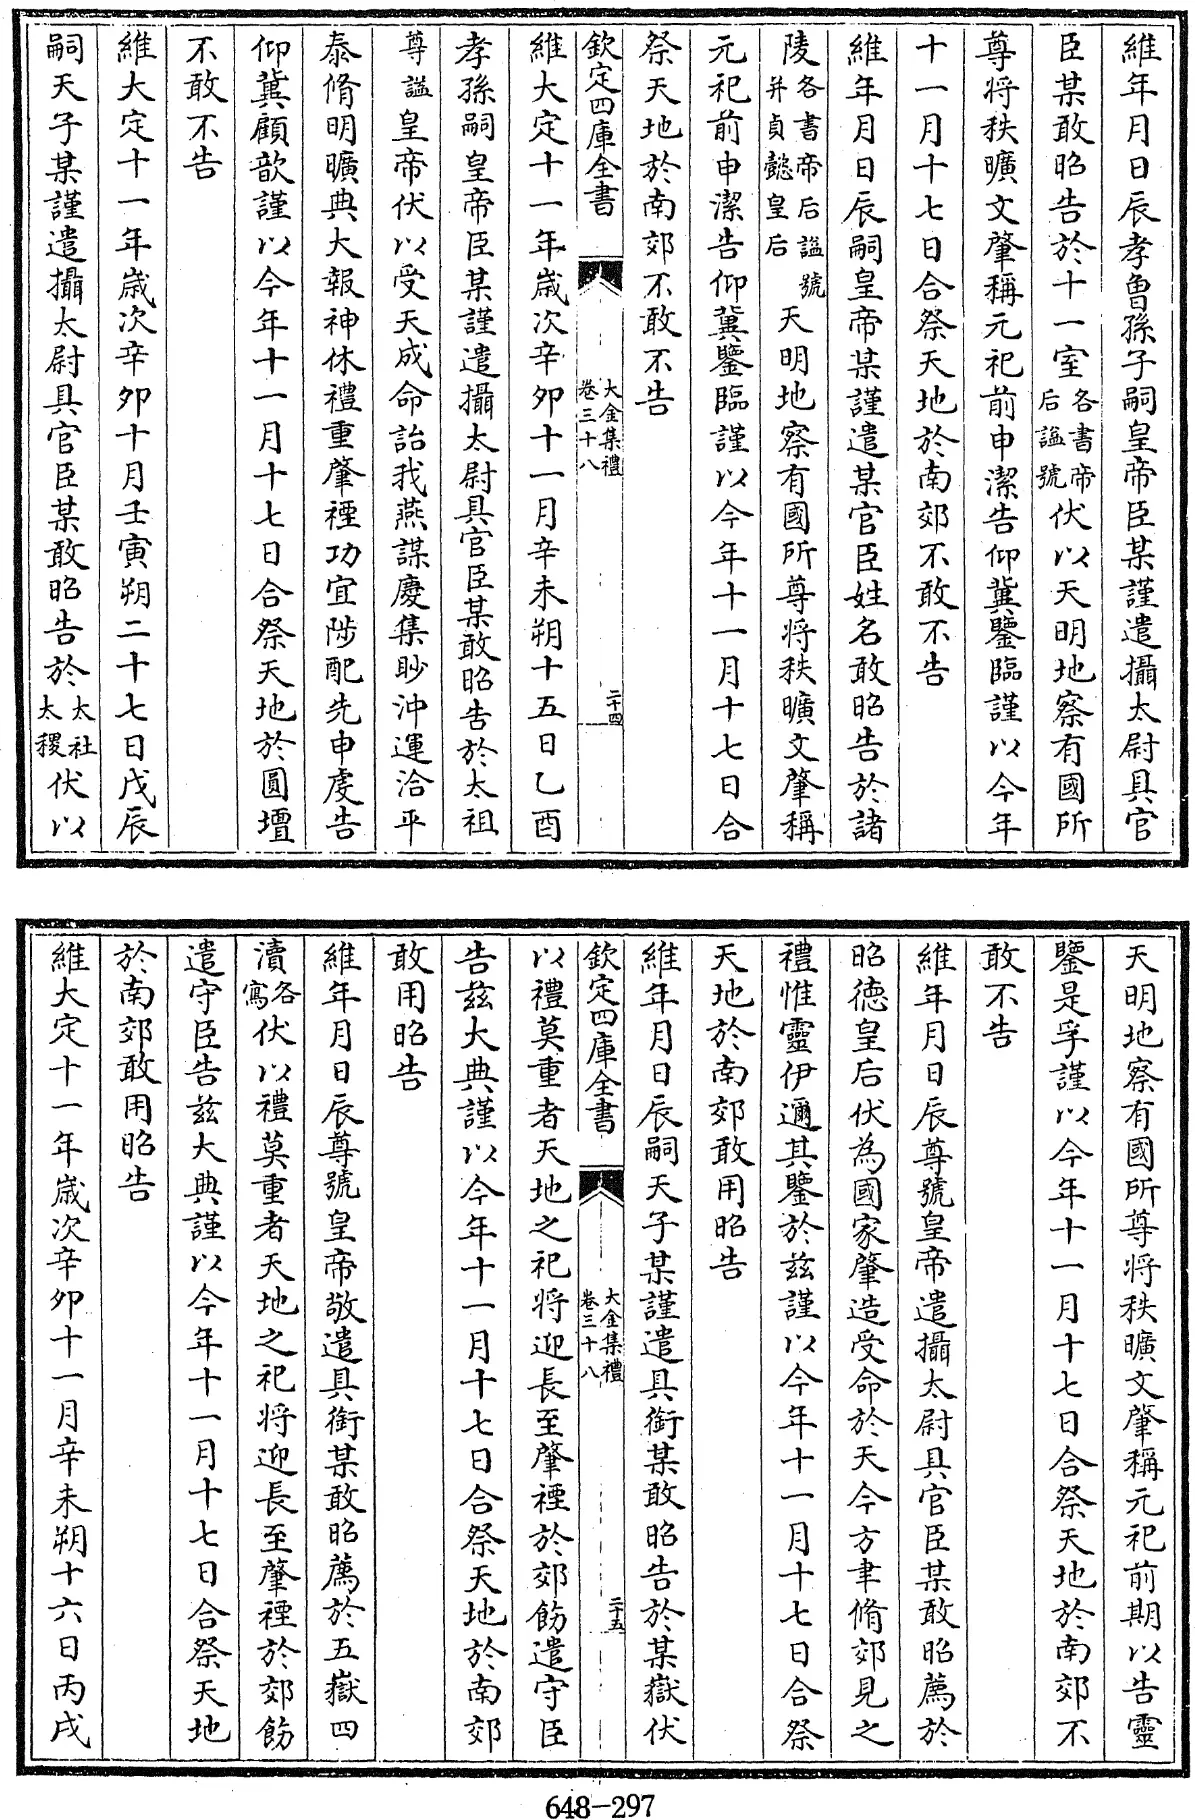 維年月日辰孝曾孫子嗣皇帝臣某謹遣攝太尉具官
臣某敢昭告於十一室各書帝后諡號伏以天明地察有國所
尊將秩曠文肇稱元祀前申潔告仰冀鑒臨謹以今年
十一月十七日合祭天地於南郊不敢不告
維年月日辰嗣皇帝某謹遣某官臣姓名敢昭告於諸
陵各書帝后諡號并貞懿皇后天明地察有國所尊將秩曠文肇稱
元祀前申潔告仰冀鑒臨謹以今年十一月十七日合
祭天地於南郊不敢不告
欽定四庫全書 大金集禮卷三十八 二十四
維大定十一年歲次辛卯十一月辛未朔十五日乙酉
孝孫嗣皇帝臣某謹遣攝太尉具官臣某敢昭告於太祖
尊諡皇帝伏以受天成命詒我燕謀慶集眇沖運洽平
泰脩明曠典大報神休禮重肇禋功宜陟配先申虔告
仰冀顧歆謹以今年十一月十七日合祭天地於圓壇
不敢不告
維大定十一年歲次辛卯十月壬寅朔二十七日戊辰
嗣天子某謹遣攝太尉具官臣某敢昭告於太社太稷伏以
天明地察有國所尊將秩曠文肇稱元祀前期以告靈
鑒是孚謹以今年十一月十七日合祭天地於南郊不
敢不告
維年月日辰尊號皇帝遣攝太尉具官臣某敢昭薦於
昭德皇后伏為國家肇造受命於天今方聿脩郊見之
禮惟靈伊邇其鑒於兹謹以今年十一月十七日合祭
天地於南郊敢用昭告
維年月日辰嗣天子某謹遣具銜某敢昭告於某嶽伏
欽定四庫全書 大金集禮卷三十八 二十五
以禮莫重者天地之祀將迎長至肇禋於郊飭遣守臣
告兹大典謹以今年十一月十七日合祭天地於南郊
敢用昭告
維年月日辰尊號皇帝敬遣具銜某敢昭薦於五嶽四
瀆各寫伏以禮莫重者天地之祀將迎長至肇禋於郊飭
遣守臣告兹大典謹以今年十一月十七日合祭天地
於南郊敢用昭告
維大定十一年歲次辛卯十一月辛未朔十六日丙戌
648-297